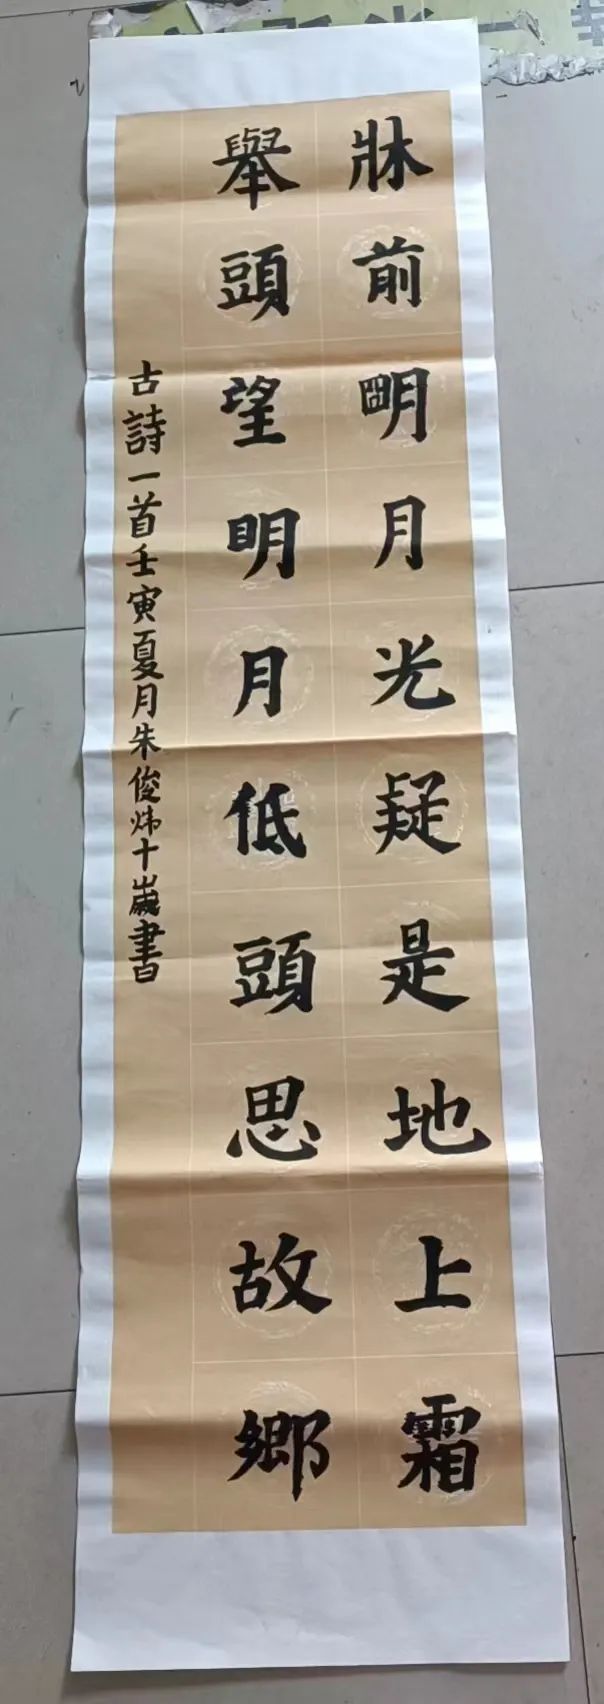 牀前朙月光疑是地上霜
舉頭望明月低頭思故鄉
古詩一首壬寅夏月朱俊炜十歲書